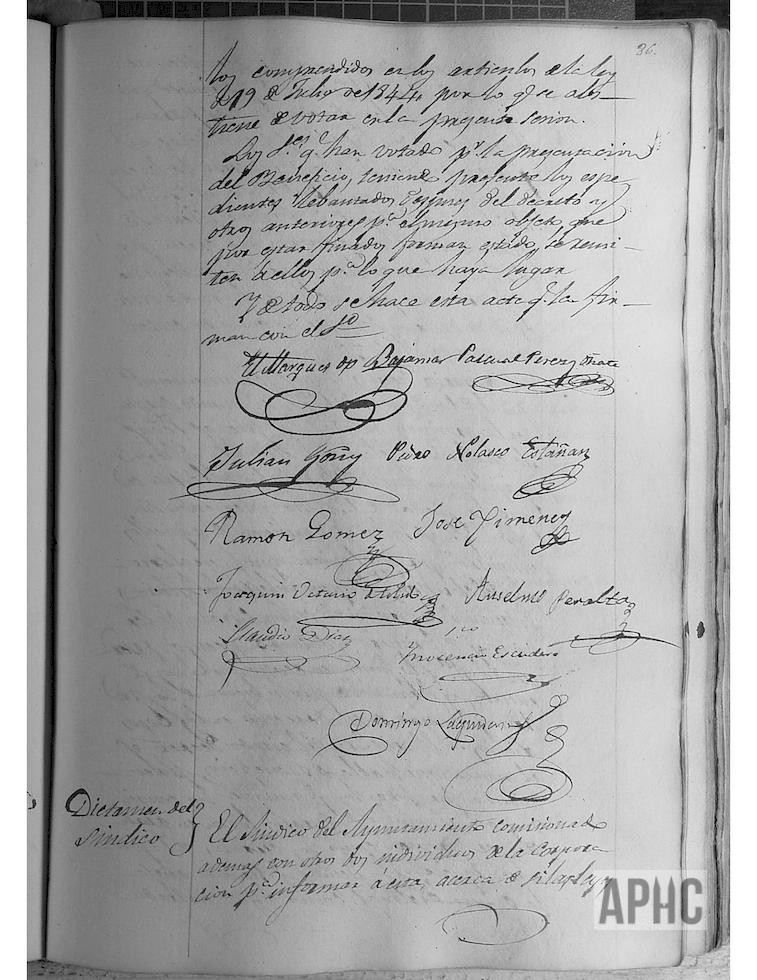 36.
los comprendidos en los articulos de la ley
de 19 de Julio de 1844, por lo q.e se abs-
tiene de votar en la presente sesion.
Los S.res q.e han votado p.r la presentacion
del Beneficio, teniendo presente los espe-
dientes lebantados despues del decreto y
otros anteriores p.a el mismo objeto que
por estar finados forman estado, se remi-
ten a ellos p.a lo que haya lugar
Y de todo se hace esta acta q.e la fir-
man con el S.io
El Marques de Bajamar Pascual Perez Oñate
Julian Goñy Pedro Nolasco Estañan
Ramon Gomez Jose Ximenez
Joaquin Octavio de Toledo Anselmo Peralta
Claudio Diaz
Inocencio Escudero
Domingo
Dictamen del
Sindico
El Sindico del Ayuntamiento comisionado
ademas con otros dos individuos de la Corpora
cion p.a informar á esta, acerca de si las leyes
APHC